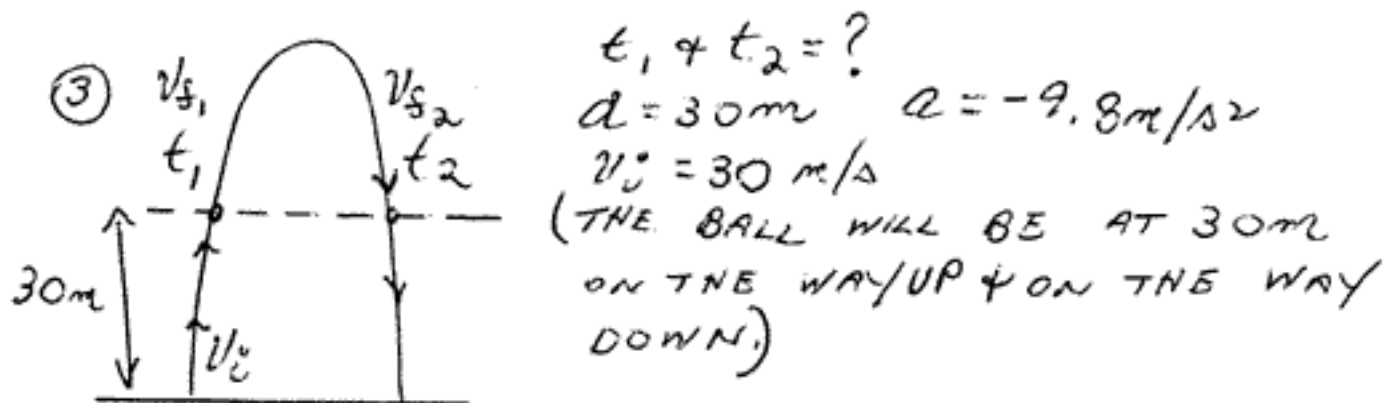 ③
v_f₁
t₁
v_f₂
t₂
30m
v_i
t₁ & t₂ = ?
d = 30m a = -9.8m/s²
v_i = 30 m/s
(THE BALL WILL BE AT 30m
ON THE WAY UP & ON THE WAY
DOWN.)